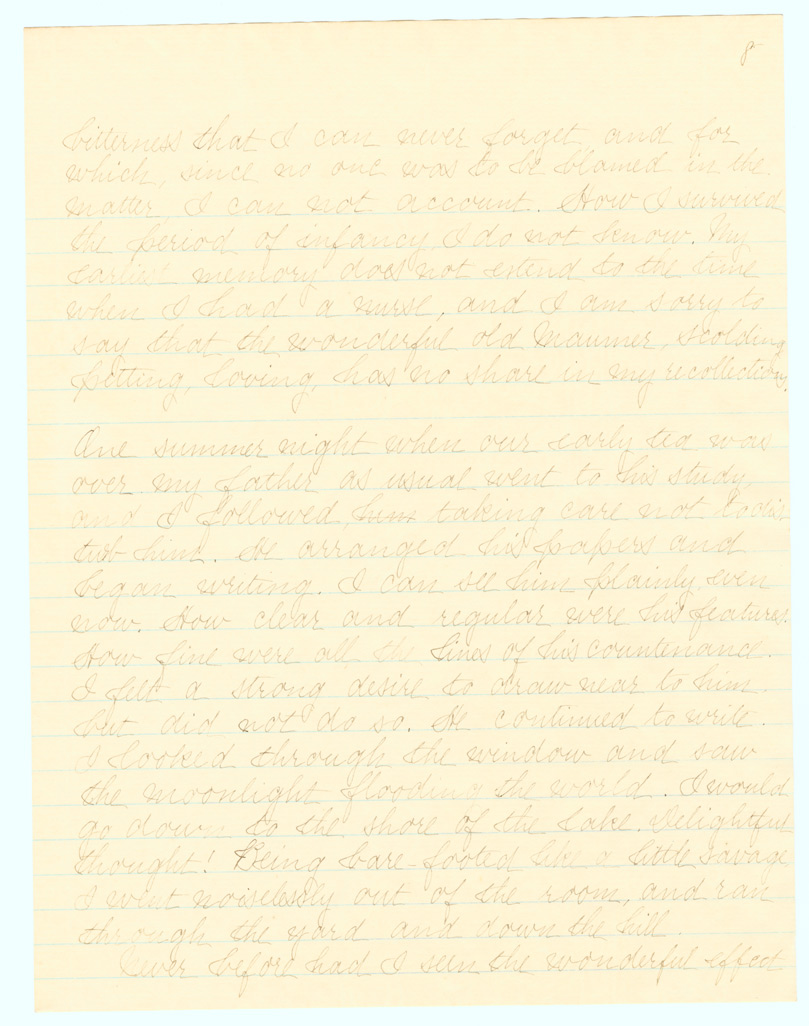 8
bitterness that I can never forget and for
which, since no one was to be blamed in the
matter, I can not account. How I survived
the period of infancy I do not know. My
earliest memory does not extend to the time
when I had a nurse, and I am sorry to
say that the wonderful old Maumer, scolding
petting, loving, has no share in my recollections.
One summer night when our early tea was
over my father as usual went to his study,
and I followed, him taking care not to dis
turb him. He arranged his papers and
began writing. I can see him plainly even
now. How clear and regular were his features.
How fine were all the lines of his countenance.
I felt a strong desire to draw near to him
but did not do so. He continued to write.
I looked through the window and saw
the moonlight flooding the world. I would
go down to the shore of the lake. Delightful
thought! Being bare-footed like a little savage
I went noiselessly out of the room, and ran
through the yard and down the hill.
Never before had I seen the wonderful effect